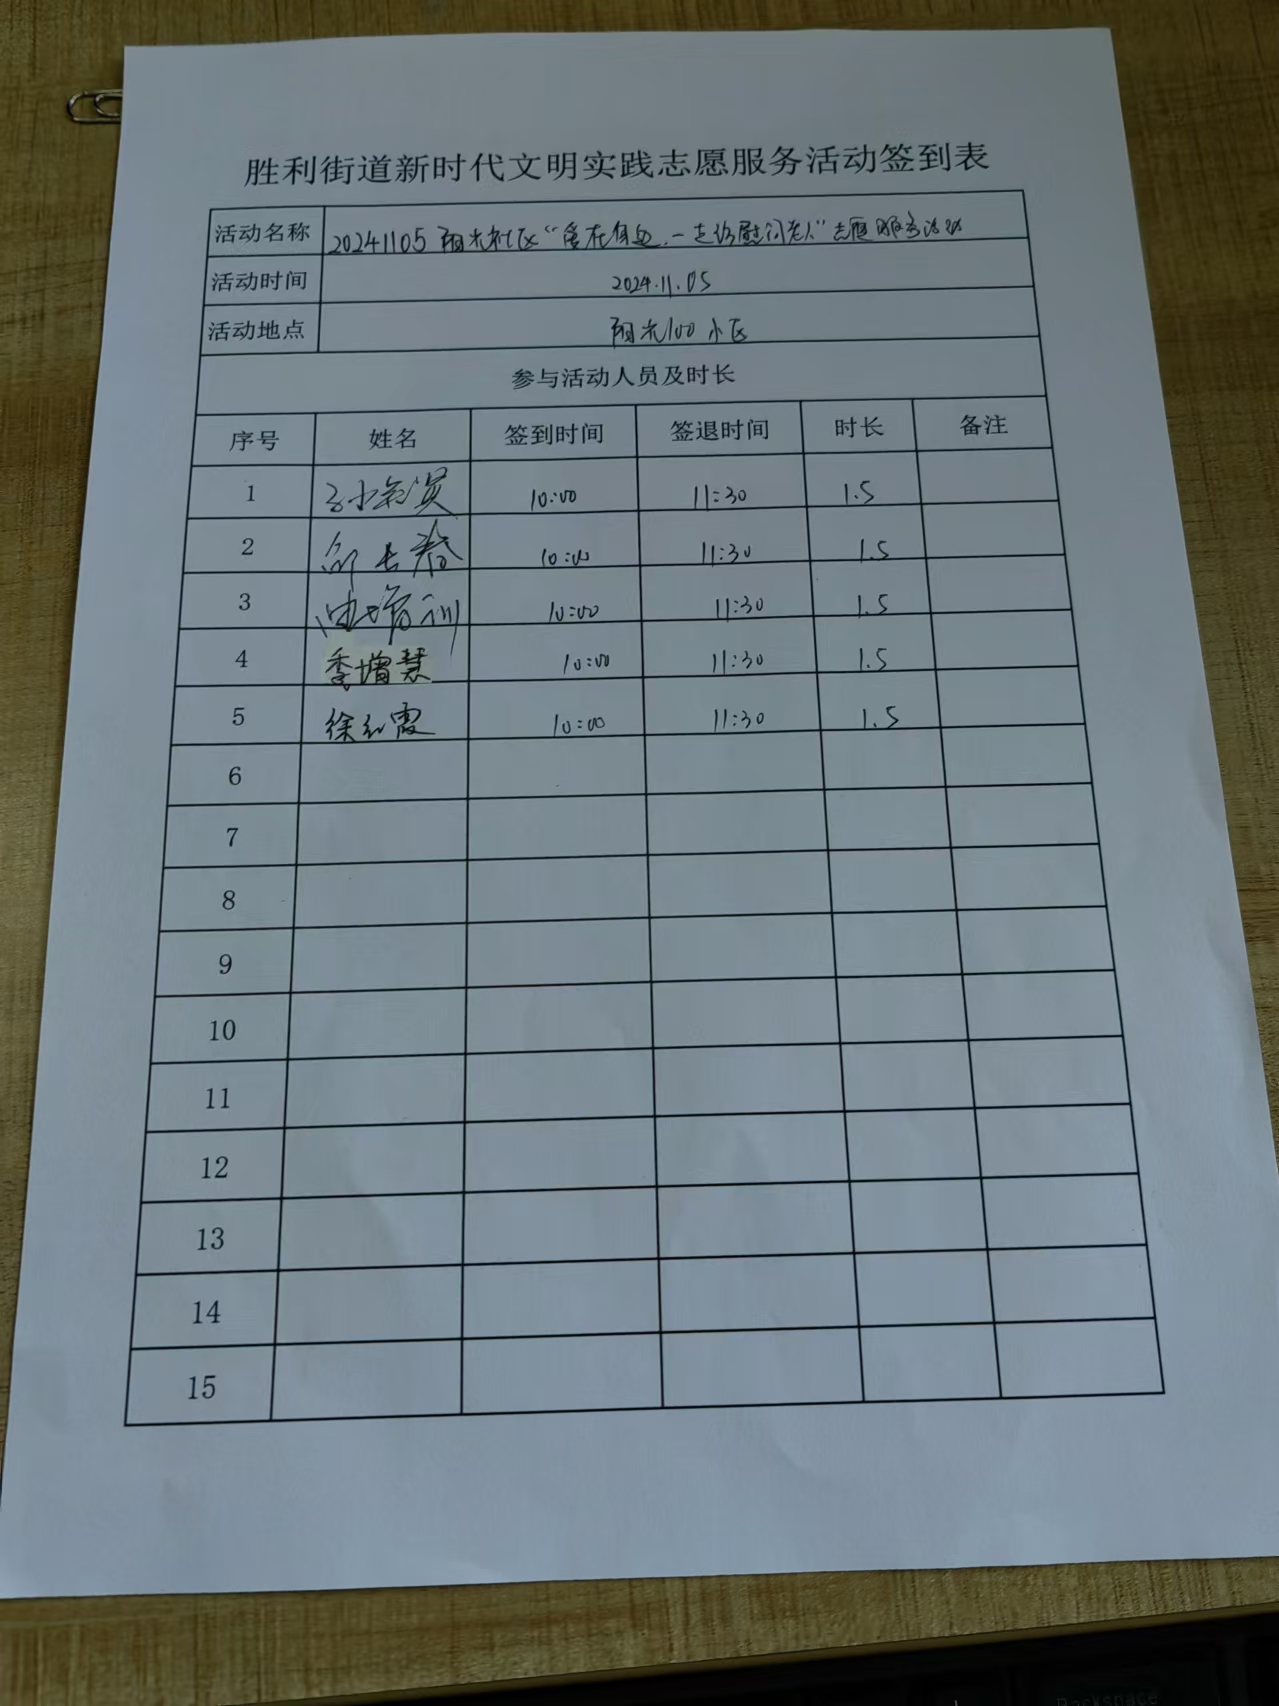 胜利街道新时代文明实践志愿服务活动签到表
活动名称 20241105阳光社区“爱在身边,一起你慰问老人”志愿服务活动
活动时间 2024.11.05
活动地点 阳光100小区
参与活动人员及时长
序号 姓名 签到时间 签退时间 时长 备注
1 10:00 11:30 1.5
2 10:00 11:30 1.5
3 10:00 11:30 1.5
4 季增慧 10:00 11:30 1.5
5 徐红霞 10:00 11:30 1.5
6
7
8
9
10
11
12
13
14
15
Backspace